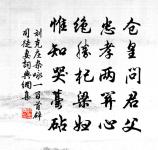 仓皇问君父
忠孝两关心
绝胜杞梁妇
惟知哭藁砧
刘克庄杂咏一百首辟
司徒妻词典网集